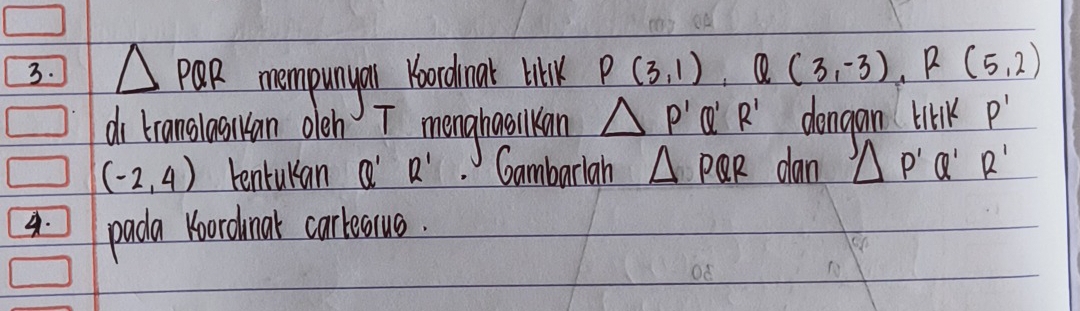 3. △ PQR mempunyai koordinat titik P (3,1), Q (3,-3), R (5,2)
di translasikan oleh T menghasilkan △ P' Q' R' dengan titik P'
(-2,4) tentukan Q' R'. Gambarlah △ PQR dan △ P' Q' R'
4. pada koordinat cartesius.